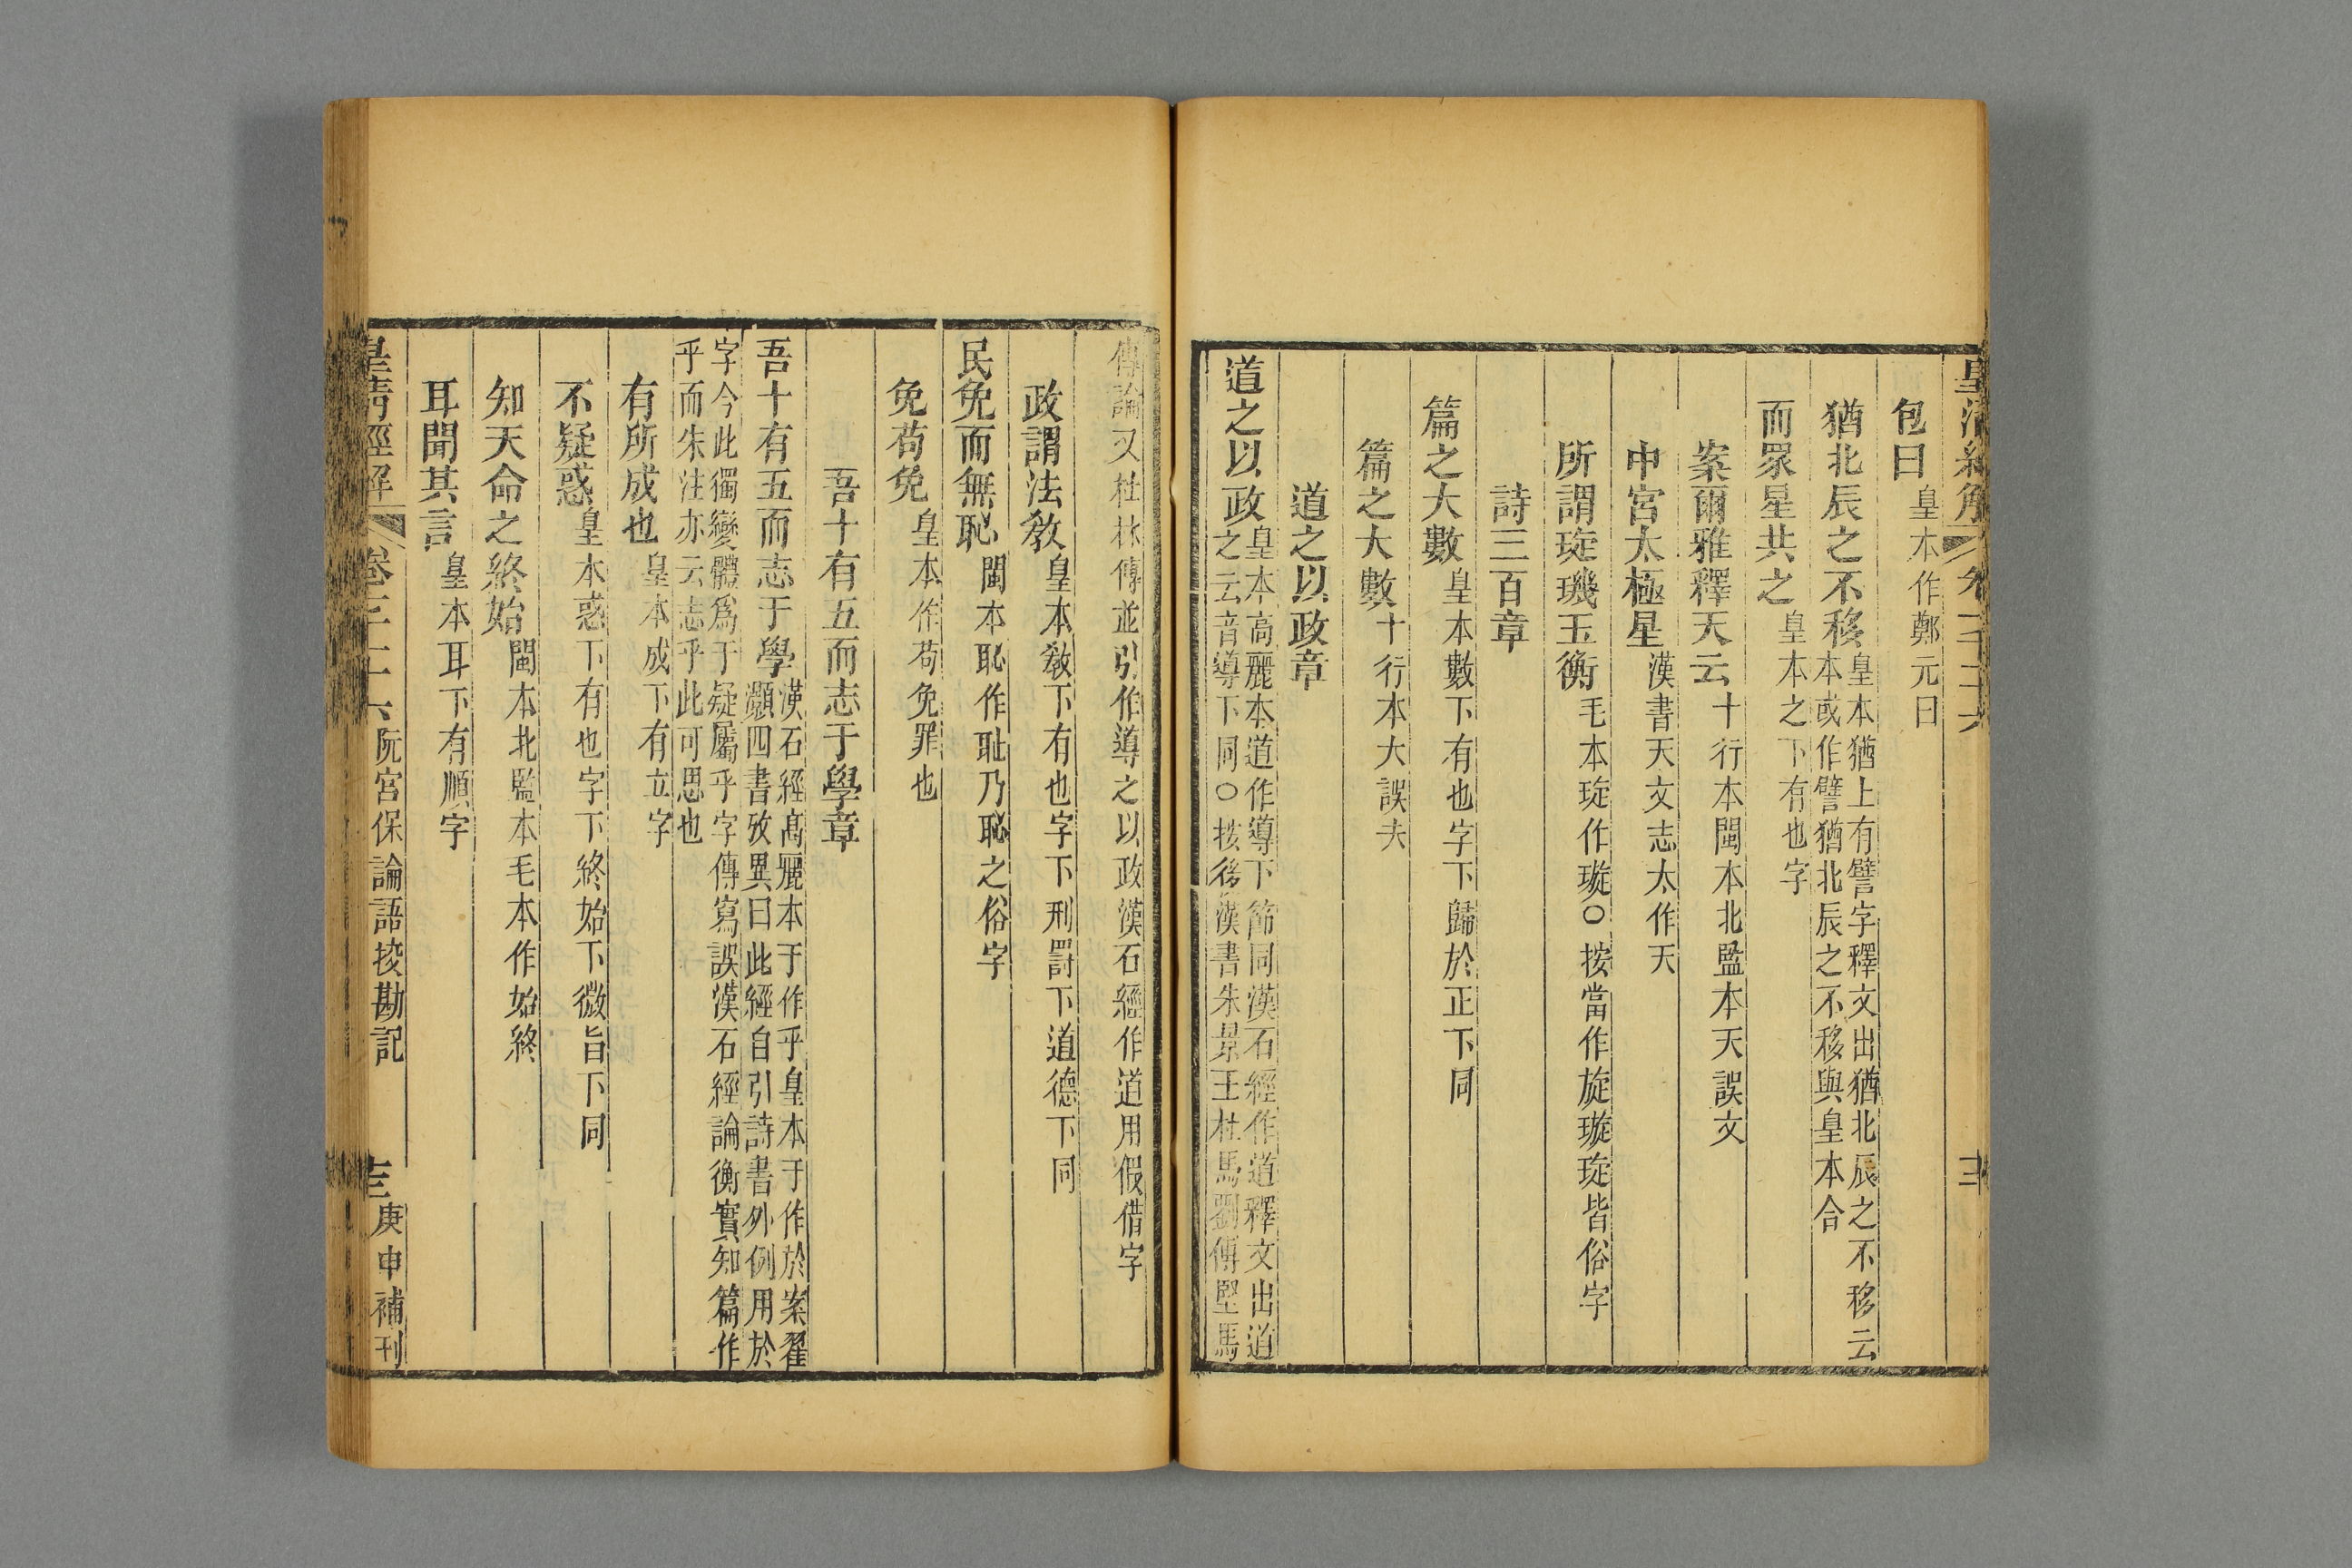 包曰皇本作鄭元曰
猶北辰之不移皇本猶上有譬字釋文出猶北辰之不移云
本或作譬猶北辰之不移與皇本合
而眾星共之皇本之下有也字
案爾雅釋天云十行本閩本北監本天誤文
中宮太極星漢書天文志太作天
所謂琁璣玉衡毛本琁作璇○按當作旋璇琁皆俗字
詩三百章
篇之大數皇本數下有也字下歸於正下同
篇之大數十行本大誤夫
道之以政章
道之以政皇本高麗本道作導下節同漢石經作道釋文出道
之云音導下同○按後漢書朱景王杜馬劉傅堅馬
傳論又杜林傳並引作導之以政漢石經作道用假借字
政謂法教皇本敎下有也字下刑罰下道德下同
民免而無恥閩本恥作耻乃恥之俗字
免苟免皇本作苟免罪也
吾十有五而志于學章
吾十有五而志于學漢石經高麗本于作乎皇本于作於案翟
灝四書攷異曰此經自引詩書外例用於
字今此獨變體爲于疑屬乎字傳寫誤漢石經論衡實知篇作
乎而朱注亦云志乎此可思也
有所成也皇本成下有立字
不疑惑皇本惑下有也字下終始下微旨下同
知天命之終始閩本北監本毛本作始終
耳聞其言皇本耳下有順字
皇清經解
阮宮保論語挍勘記
庚申補刊